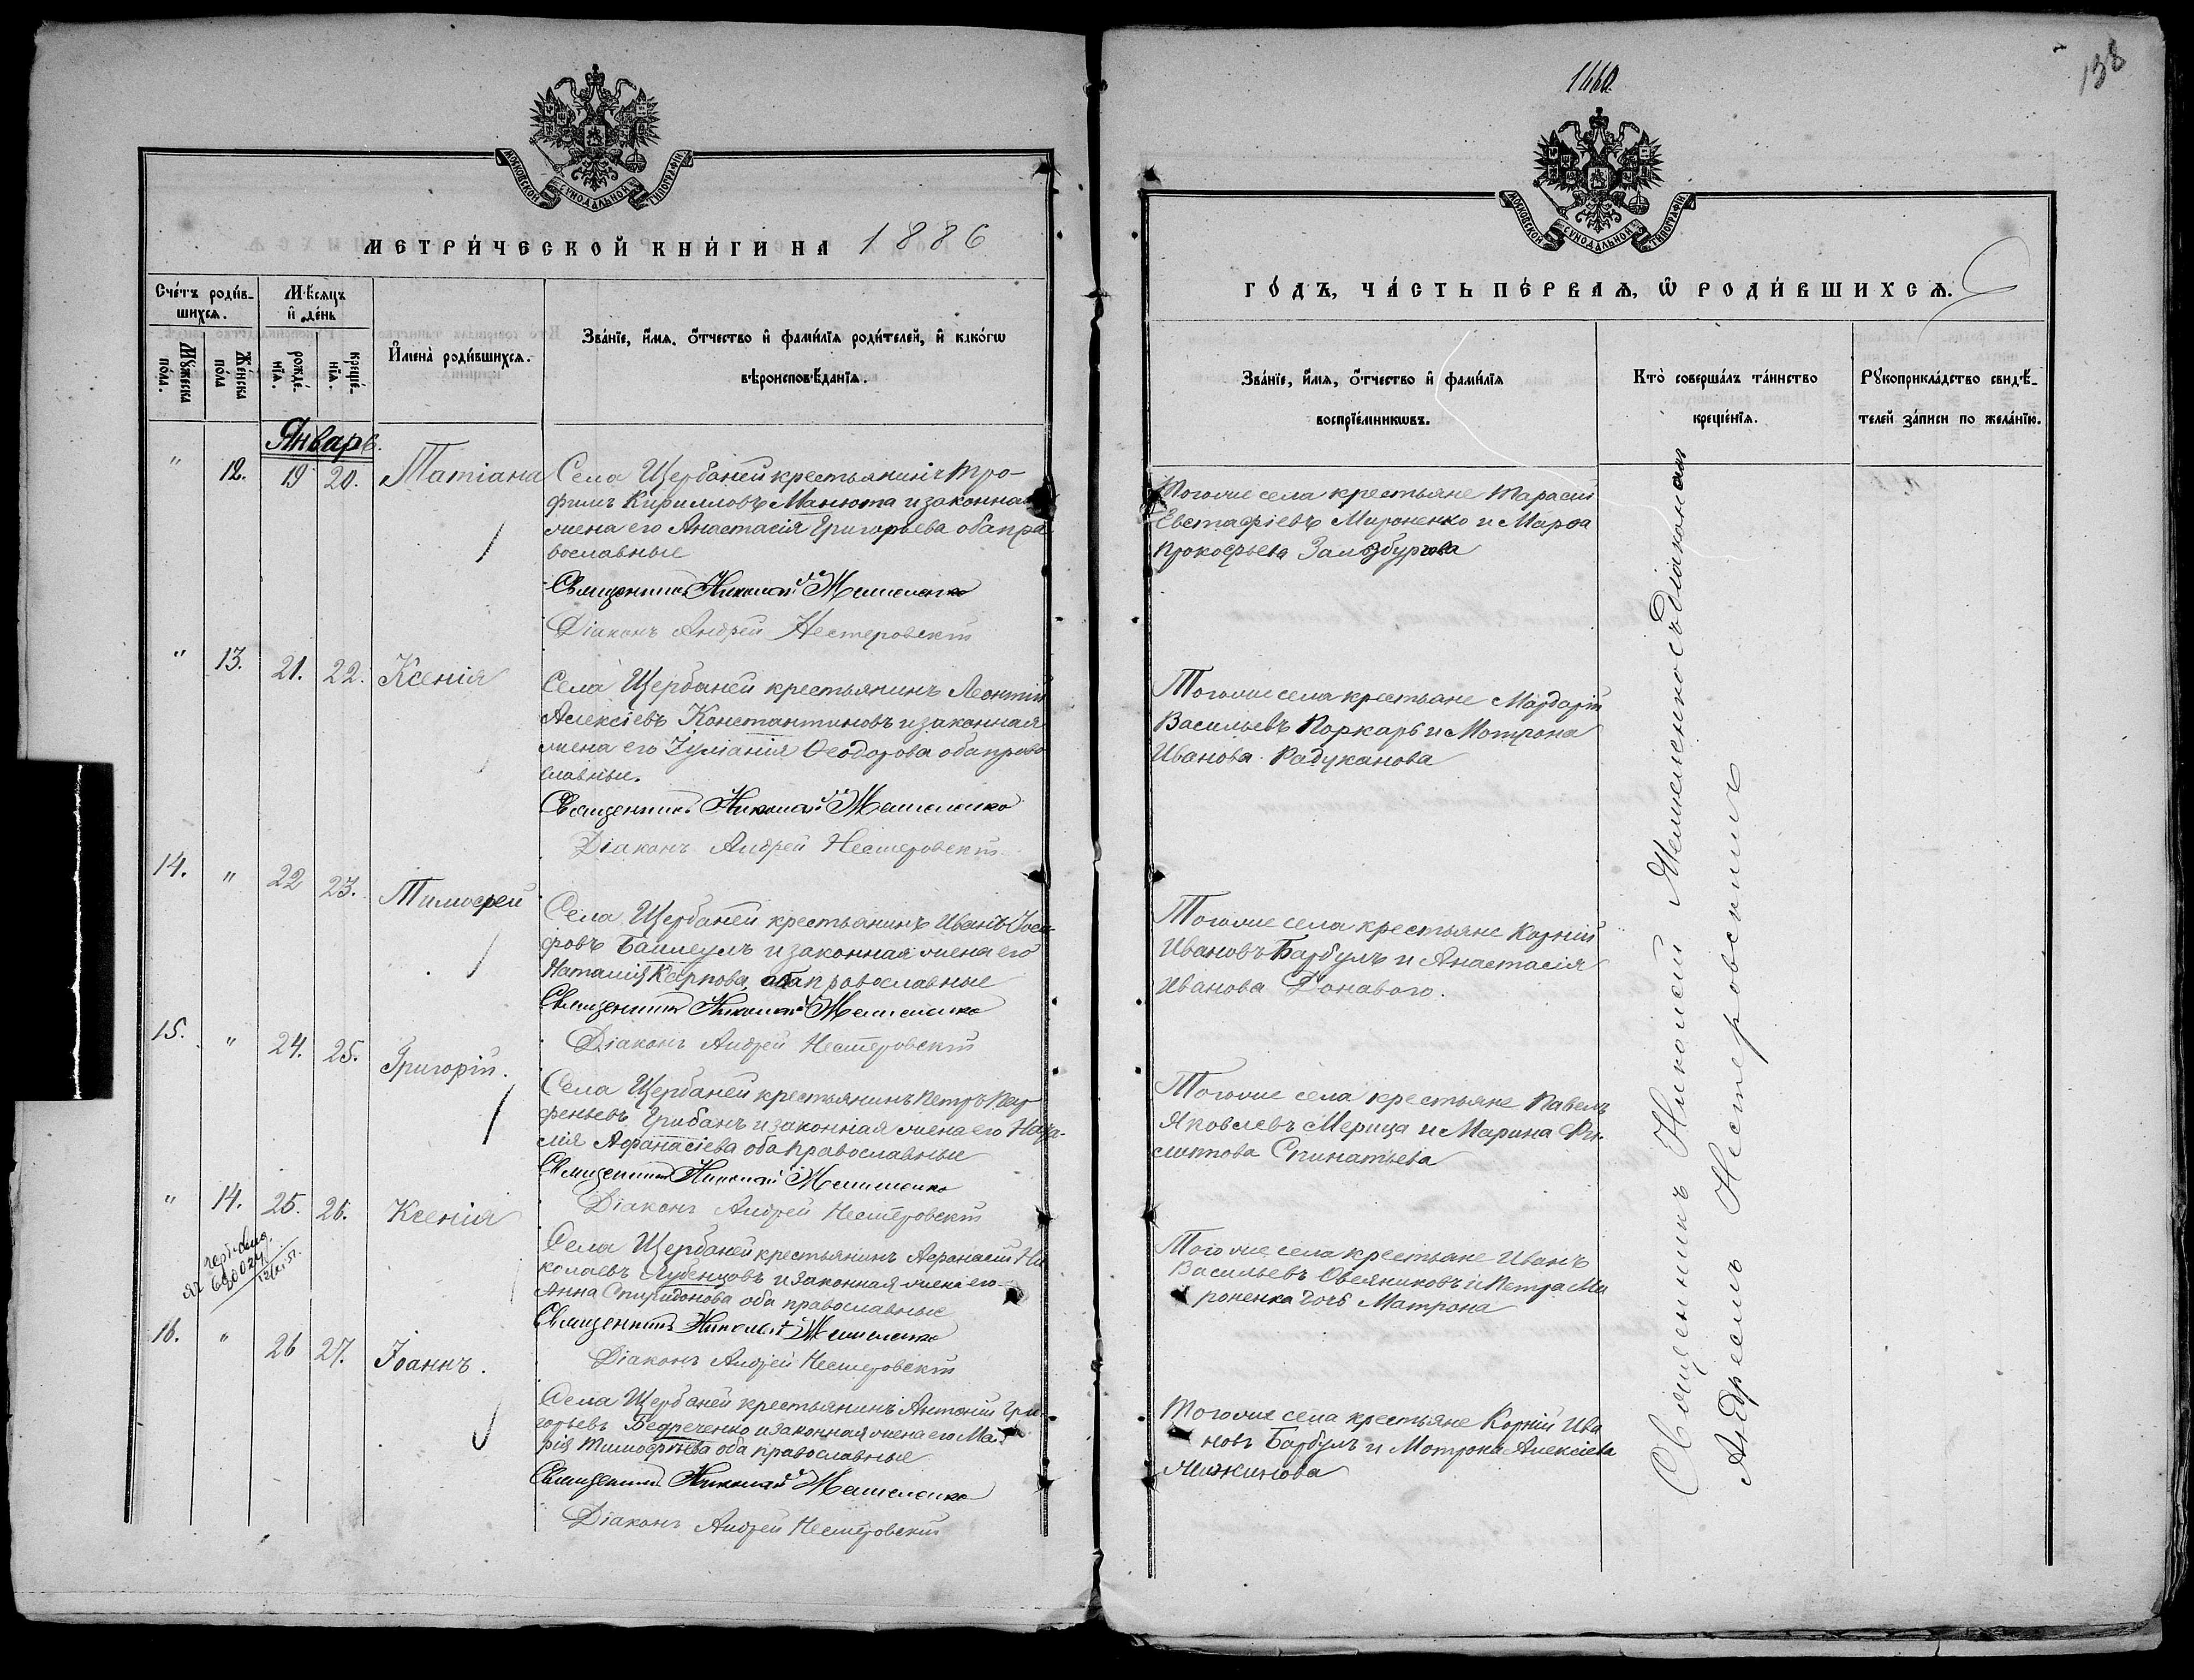 МОСКОВСКОЙ СѴНОДАЛЬНОЙ ТИПОГРАФІИ
МЕТРИ́ЧЕСКОЙ КНИ́ГИ НА 1886
Сче́тъ роди́в-
шихсѧ.
Мѣ́сѧцъ
и҆ де́нь
И҆мена̀ роди́вшихсѧ.
Зва́нїе, и҆́мѧ, ѻ҆́тчество и҆ фами́лїѧ роди́телей, и҆ како́гѡ
вѣроисповѣ́данїѧ.
Мꙋ́жеска
по́ла.
Же́нска
по́ла
рожде́-
нїѧ.
креще́-
нїѧ.
Январь.
" 12. 19 20. Татіана
Села Щербаней крестьянинъ Тро-
фимъ Кирилловъ Манюта и законная
жена его Анастасія Григорьева оба пра
вославные
Священникъ Николай Мешменко
Діаконъ Андрей Нестеровскій
" 13. 21. 22. Ксенія
Села Щербаней крестьянинъ Леонтій
Алексіевъ Константиновъ и законная
жена его Іуліанія Ѳеодорова оба право
славные.
Священникъ Николай Мешменко
Діаконъ Андрей Нестеровскій
14. " 22 23. Тимофей
Села Щербаней крестьянинъ Иванъ Іоси
фовъ Баишеулъ и законная жена его
Наталія Карпова оба православные
Священникъ Николай Мешменко
Діаконъ Андрей Нестеровскій
15. " 24. 25. Григорій.
Села Щербаней крестьянинъ Петръ Пар
феньевъ Грибанъ и законная жена его Ната-
лія Афанасіева оба православные
Священникъ Николай Мешменко
Діаконъ Андрей Нестеровскій
" 14. 25. 26. Ксенія
Села Щербаней крестьянинъ Афанасій Ни
колаевъ Лубенцовъ и законная жена его
Анна Спиридонова оба православные
Священникъ Николай Мешменко
Діаконъ Андрей Нестеровскій
16. " 26 27. Іоаннъ.
Села Щербаней крестьянинъ Антоній Гри-
горьевъ Бедреченко и законная жена его Ма-
рія Тимофѣева оба православные
Священникъ Николай Мешменко
Діаконъ Андрей Нестеровскій
138
МОСКОВСКОЙ СѴНОДАЛЬНОЙ ТИПОГРАФІИ
ГО́ДЪ, ЧА́СТЬ ПЕ́РВАѦ, Ѡ҆ РОДИ́ВШИХСѦ.
Зва́нїе, и҆́мѧ, ѻ҆́тчество и҆ фами́лїѧ
воспрїе́мникѡвъ.
Кто̀ соверша́лъ та́инство
креще́нїѧ.
Рꙋкоприкла́дство свидѣ́-
телей за́писи по жела́нїю.
Тогоже села крестьяне Тарасій
Евстафіевъ Мироненко и Марфа
Прокофьева
Тогоже села крестьяне Мардарій
Васильевъ Поркарь и Мотрона
Иванова Радуканова
Тогоже села крестьяне Корній
Ивановъ Барбулъ и Анастасія
Иванова Донавого.
Тогоже села крестьяне Павелъ
Яковлевъ Мерица и Марина Фи-
липпова Спинатьева
Тогоже села крестьяне Иванъ
Васильевъ Овсяниковъ и Петра Ми
роненка дочь Матрона
Тогоже села крестьяне Корній Ива
новъ Барбулъ и Мотрона Алексіева
Мижинова
Священникъ Николай Мешменко съ Діакономъ
Андреемъ Нестеровскимъ